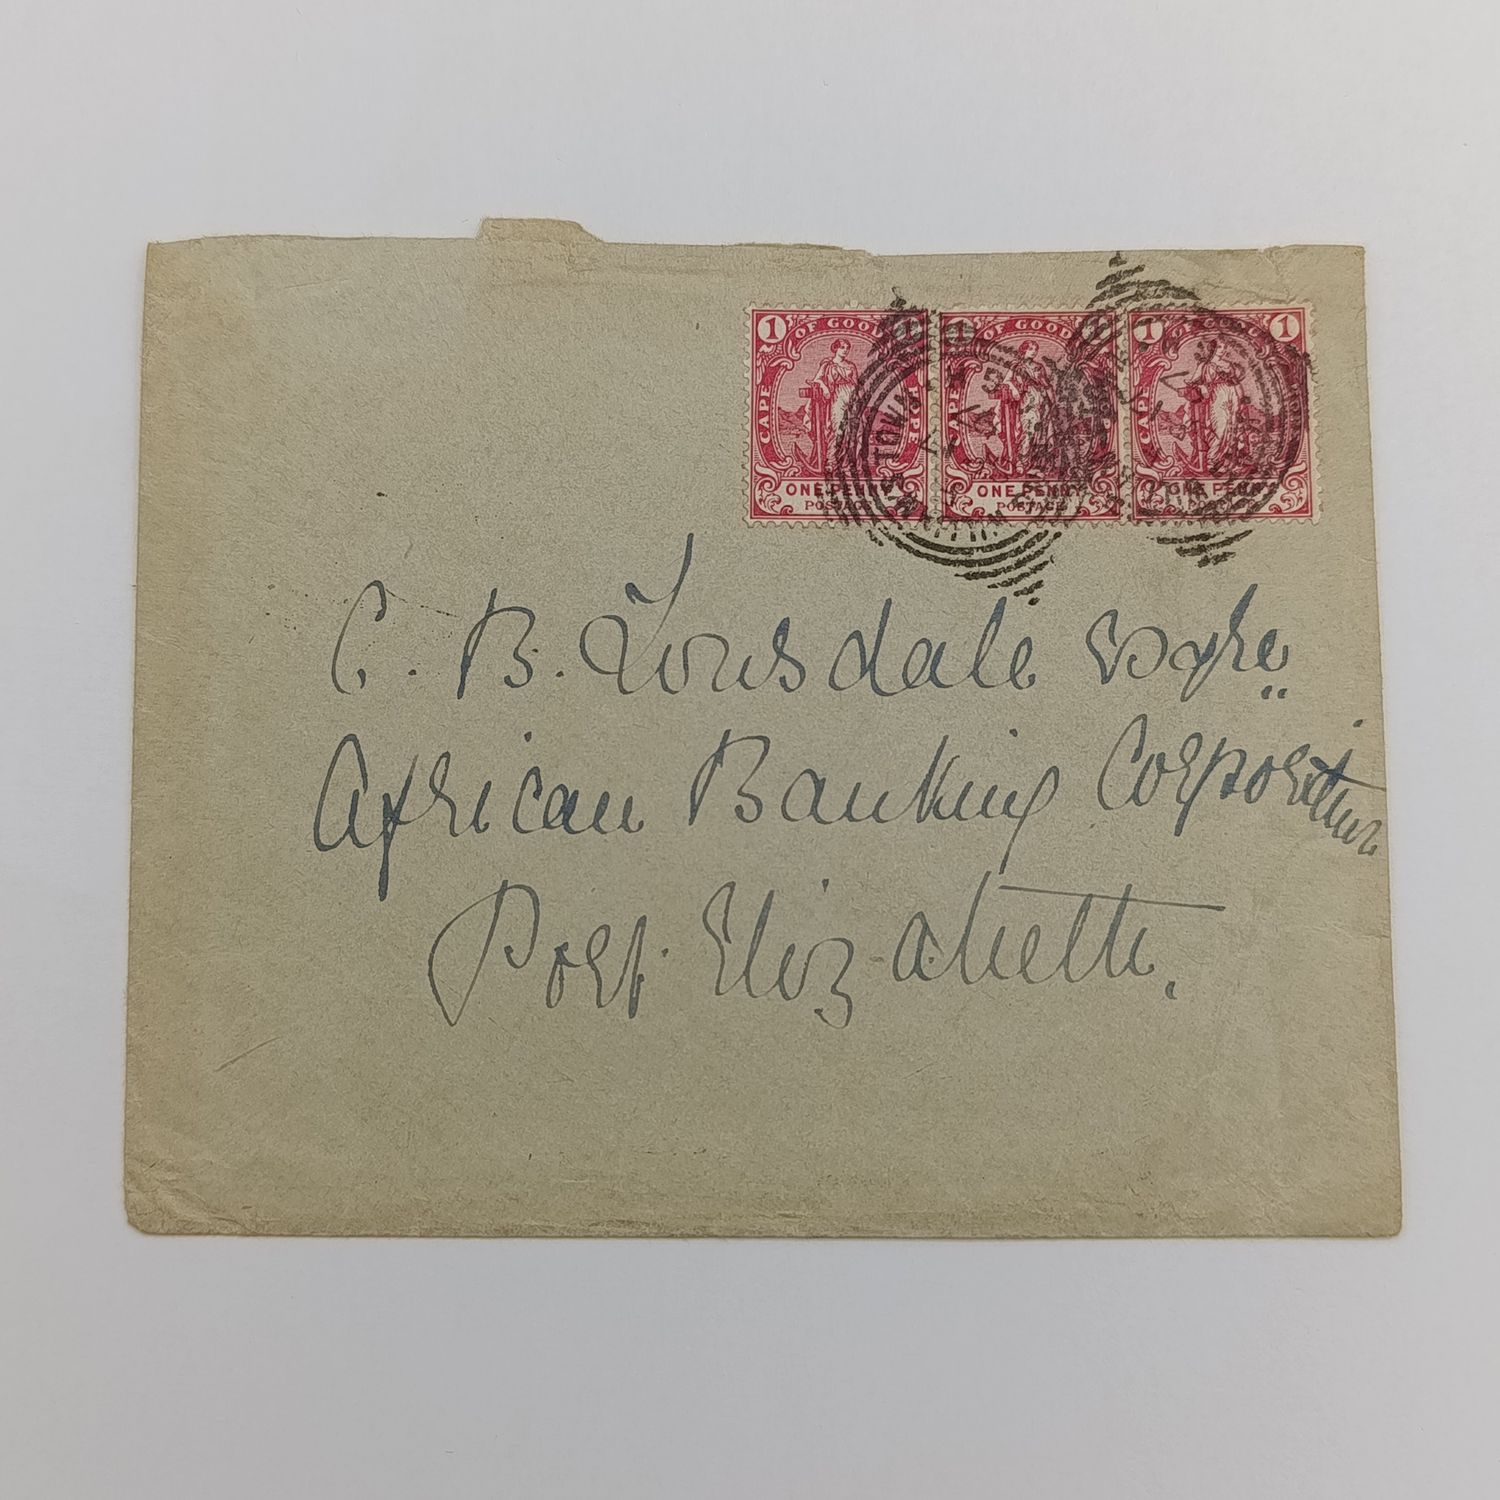 1 OF GOOD 1 1 OF GOOD 1 1 OF GOOD 1
CAPE HOPE CAPE CAPE
ONE PENNY ONE PENNY ONE PENNY
POSTAGE POSTAGE
TOWN
C. B. Lonsdale Esqre
African Banking Corporation
Port Elizabeth.